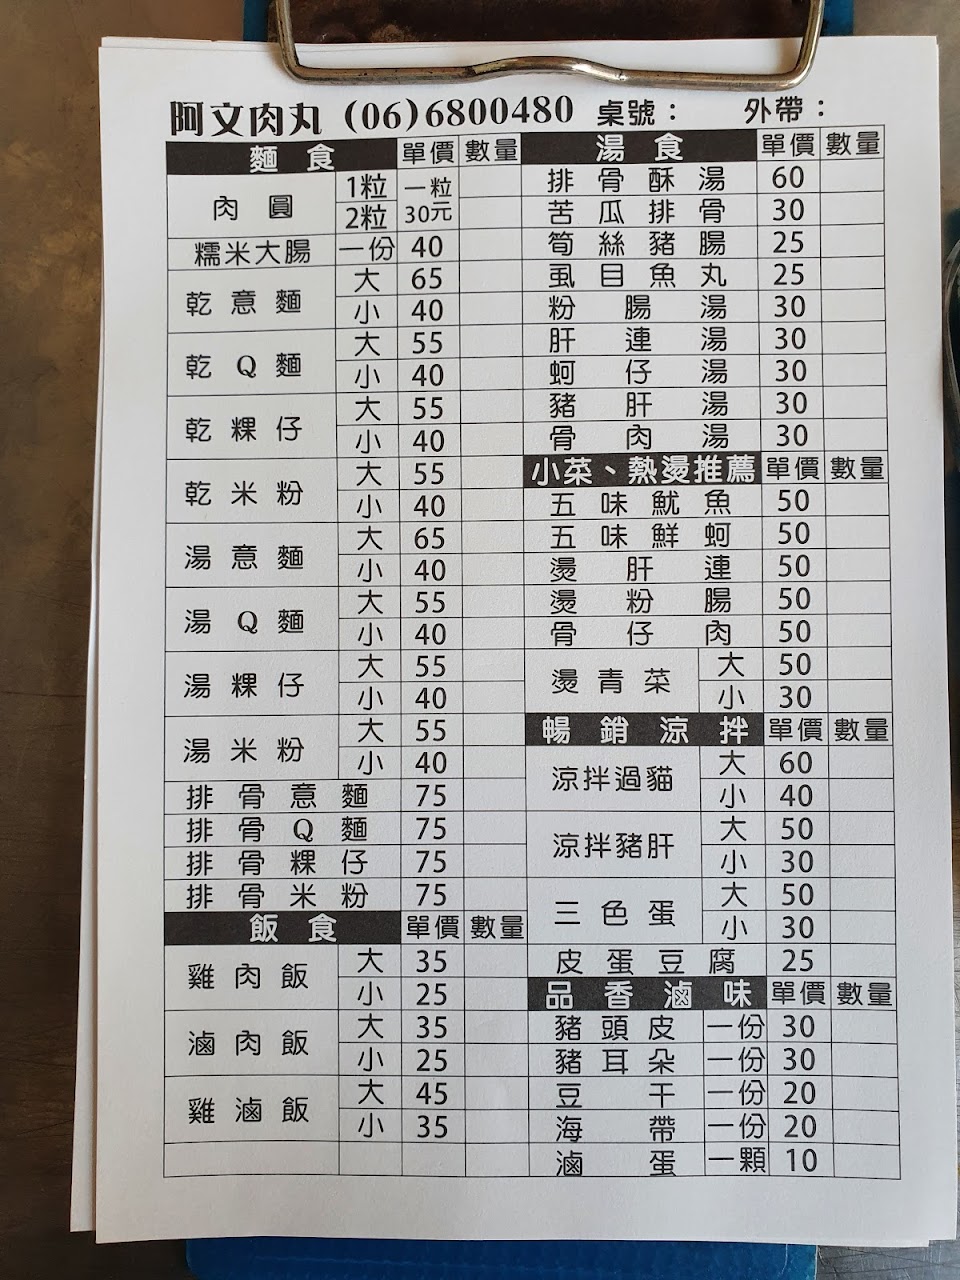 阿文肉丸 (06)6800480 桌號： 外帶：
麵食 單價 數量
肉圓 1粒 一粒
2粒 30元
糯米大腸 一份 40
乾意麵 大 65
小 40
乾Q麵 大 55
小 40
乾粿仔 大 55
小 40
乾米粉 大 55
小 40
湯意麵 大 65
小 40
湯Q麵 大 55
小 40
湯粿仔 大 55
小 40
湯米粉 大 55
小 40
排骨意麵 75
排骨Q麵 75
排骨粿仔 75
排骨米粉 75
飯食 單價 數量
雞肉飯 大 35
小 25
滷肉飯 大 35
小 25
雞滷飯 大 45
小 35
湯食 單價 數量
排骨酥湯 60
苦瓜排骨 30
筍絲豬腸 25
虱目魚丸 25
粉腸湯 30
肝連湯 30
蚵仔湯 30
豬肝湯 30
骨肉湯 30
小菜、熱燙推薦 單價 數量
五味魷魚 50
五味鮮蚵 50
燙肝連 50
燙粉腸 50
骨仔肉 50
燙青菜 大 50
小 30
暢銷涼拌 單價 數量
涼拌過貓 大 60
小 40
涼拌豬肝 大 50
小 30
三色蛋 大 50
小 30
皮蛋豆腐 25
品香滷味 單價 數量
豬頭皮 一份 30
豬耳朵 一份 30
豆干 一份 20
海帶 一份 20
滷蛋 一顆 10